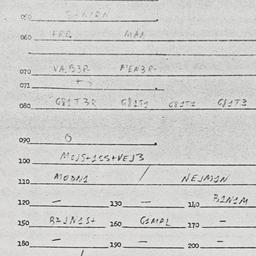 050
060 FRG MAN
070 VA,B3R MEN3R
071
080 G81T3R G81T1 G81T1 G81T3
090 0
100 MOJS+1SS+VEJ3
110 MODN1 / NEJM1N
120 — 130 — 140 B1N1M
150 160 G1MPL 170 —
180 — 190 — 200 —